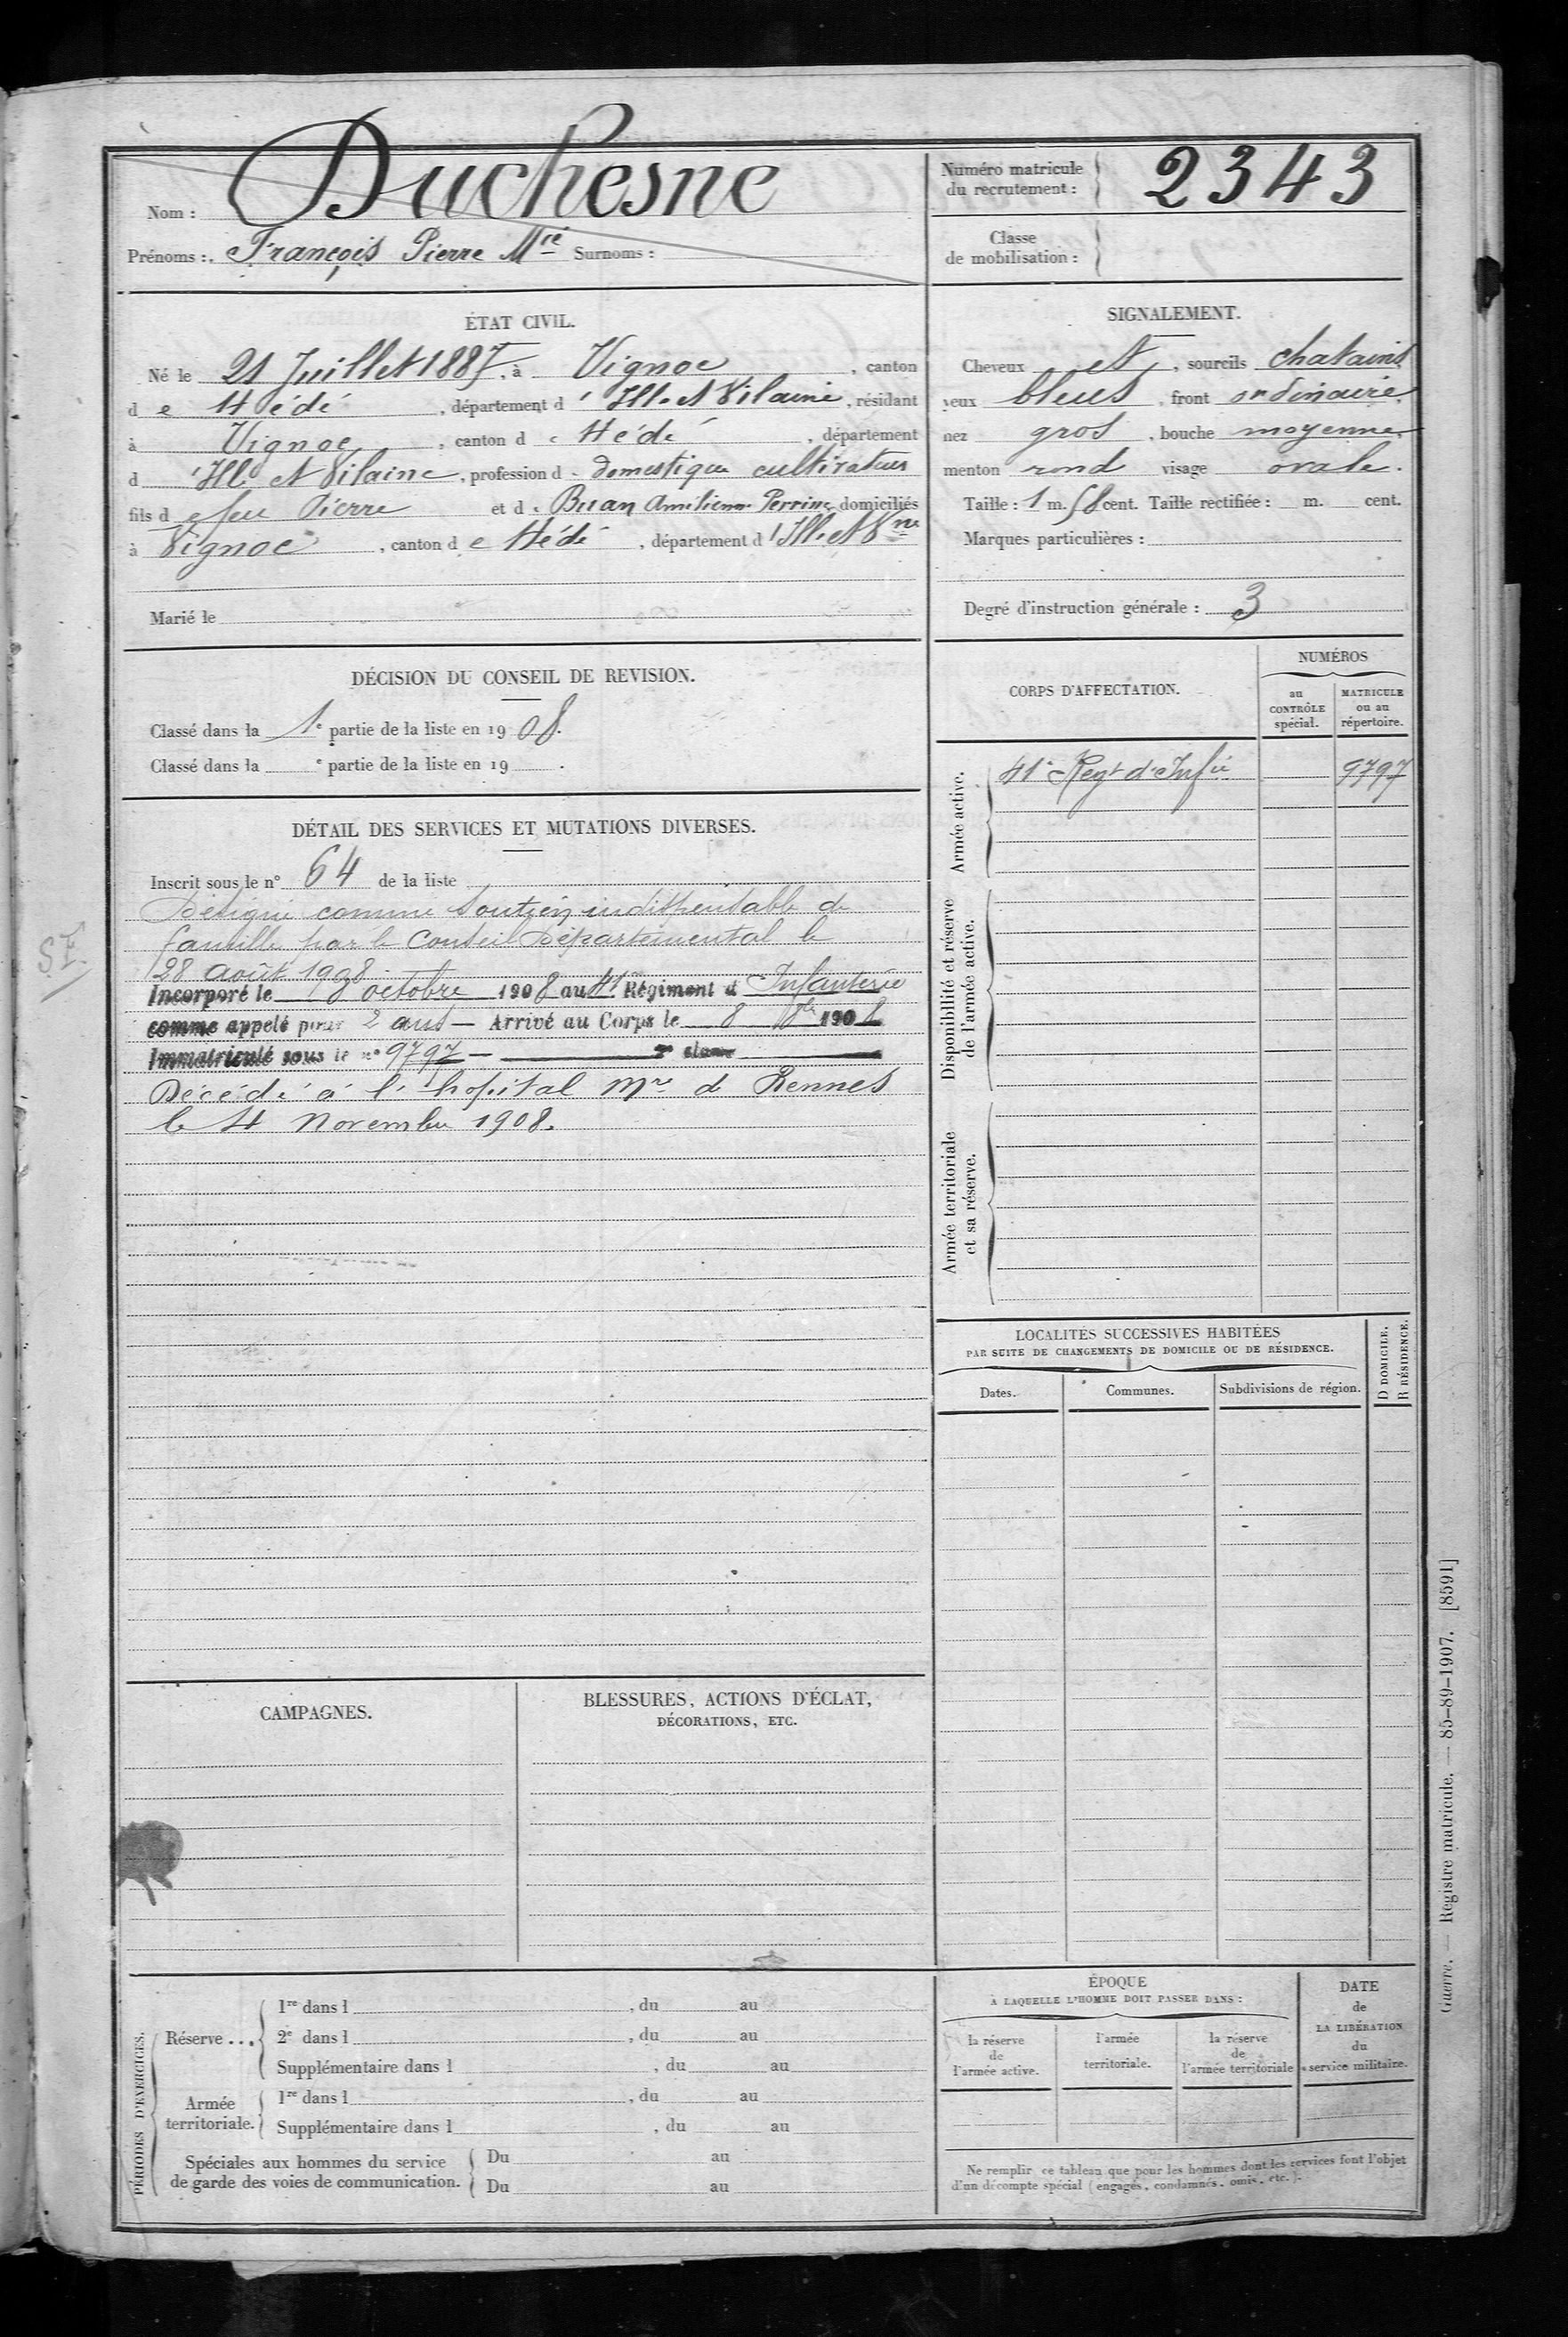 Duchesne
Nom :
Prénoms : François Pierre Mie Surnoms :
Numéro matricule
du recrutement : 2343
Classe
de mobilisation :
ÉTAT CIVIL.
Né le 21 Juillet 1887, à Vignoc, canton
de Hédé, département d'Ille et Vilaine, résidant
à Vignoc, canton de Hédé, département
d'Ille et Vilaine, profession d domestique cultivateur
fils de feu Pierre et de Buan Perrine domiciliés
à Vignoc, canton de Hédé, département d'Ille et Vne
Marié le
SIGNALEMENT.
Cheveux et, sourcils chatains
yeux bleus, front ordinaire,
nez gros, bouche moyenne,
menton rond visage ovale.
Taille : 1 m. 58 cent. Taille rectifiée : m. cent.
Marques particulières :
Degré d'instruction générale : 3
DÉCISION DU CONSEIL DE REVISION.
Classé dans la 1e partie de la liste en 1908.
Classé dans la e partie de la liste en 19 .
DÉTAIL DES SERVICES ET MUTATIONS DIVERSES.
Inscrit sous le n° 64 de la liste
Désigné comme soutien indispensable de
famille par le Conseil Départemental le
28 août 1908
S.F.
Incorporé le 8 octobre 1908 au 41e Régiment d'Infanterie
comme appelé pour 2 ans — Arrivé au Corps le 8 8bre 1908
Immatriculé sous le n° 9797 — classe
Décédé à l'hopital Mre de Rennes
le 4 Novembre 1908.
CORPS D'AFFECTATION.
NUMÉROS
au
CONTRÔLE
spécial.
MATRICULE
ou au
répertoire.
Armée active.
41e Regt d'Infie 9797
Disponibilité et réserve
de l'armée active.
Armée territoriale
et sa réserve.
LOCALITÉS SUCCESSIVES HABITÉES
PAR SUITE DE CHANGEMENTS DE DOMICILE OU DE RÉSIDENCE.
Dates. Communes. Subdivisions de région.
D DOMICILE.
R RÉSIDENCE.
CAMPAGNES.
BLESSURES, ACTIONS D'ÉCLAT,
DÉCORATIONS, ETC.
PÉRIODES D'EXERCICES.
Réserve...
1re dans l , du au
2e dans l , du au
Supplémentaire dans l , du au
Armée
territoriale.
1re dans l , du au
Supplémentaire dans l , du au
Spéciales aux hommes du service
de garde des voies de communication.
Du au
Du au
ÉPOQUE
À LAQUELLE L'HOMME DOIT PASSER DANS :
la réserve
de
l'armée active.
l'armée
territoriale.
la réserve
de
l'armée territoriale
DATE
de
LA LIBÉRATION
du
service militaire.
Ne remplir ce tableau que pour les hommes dont les services font l'objet
d'un décompte spécial (engagés, condamnés, omis, etc.).
Guerre. — Registre matricule. — 85-89-1907. [8591]